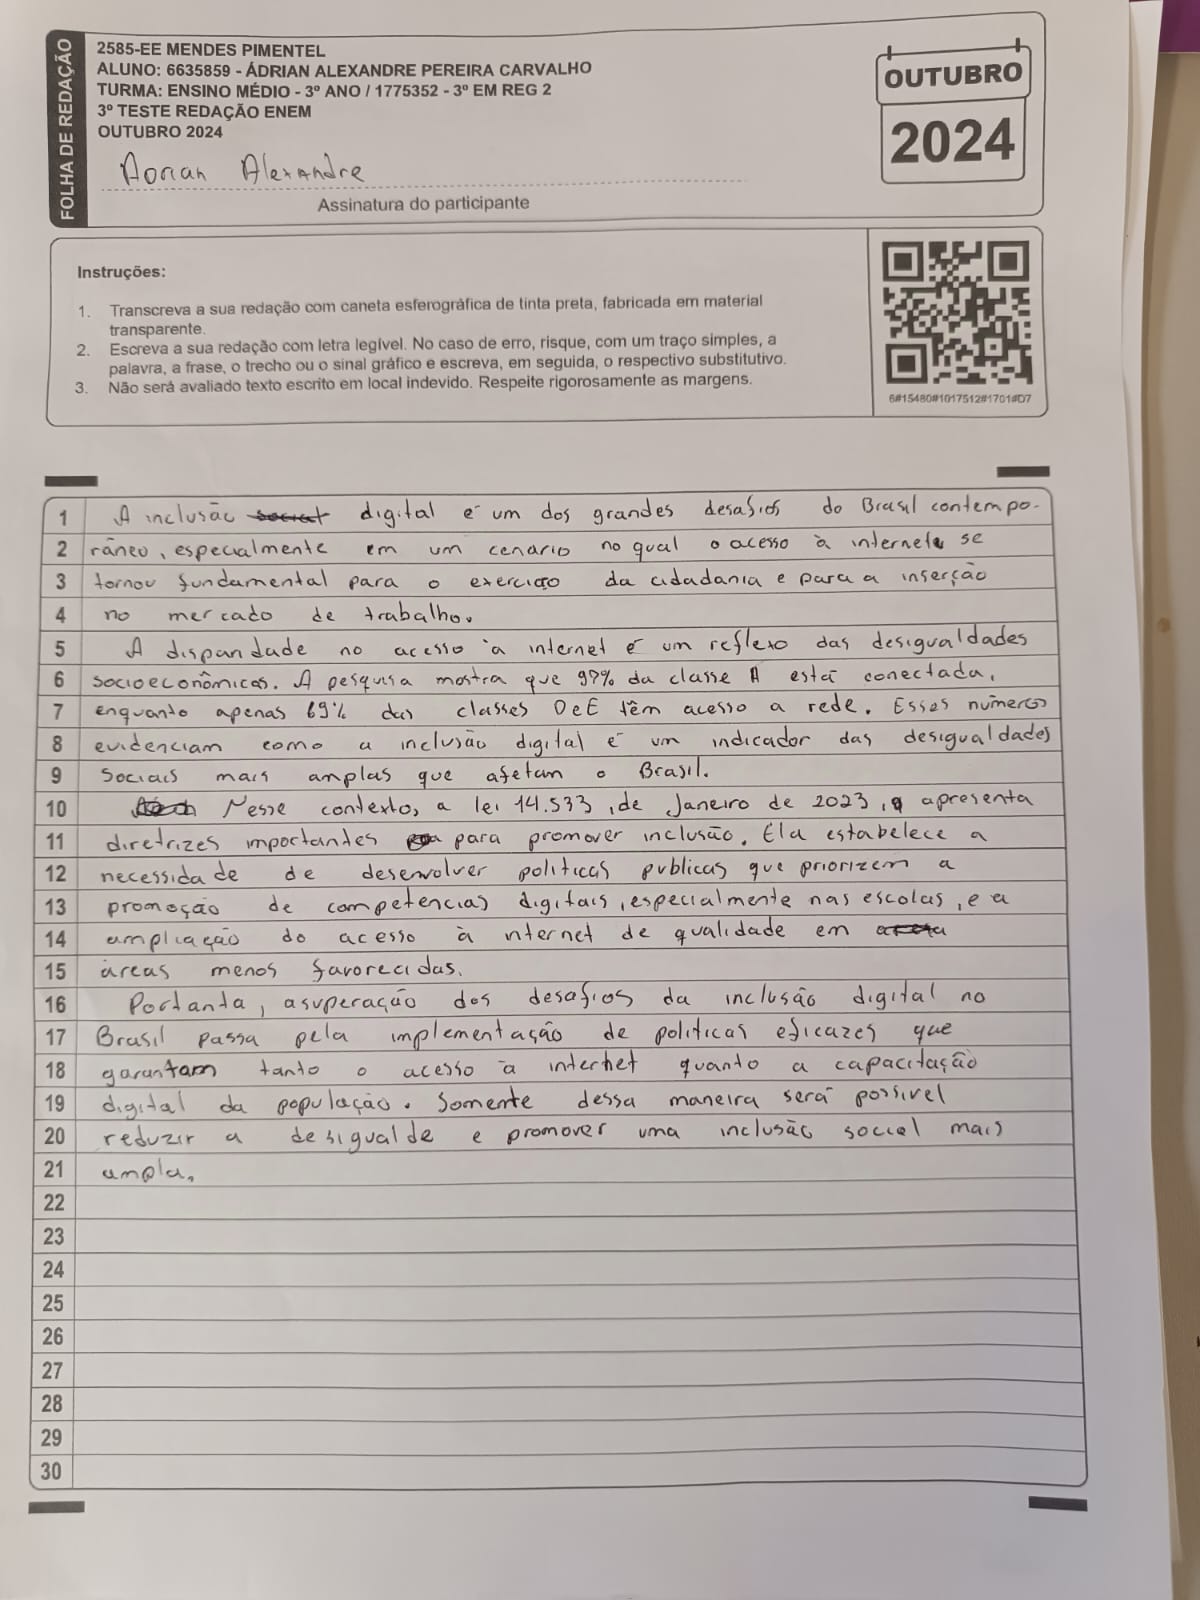 FOLHA DE REDAÇÃO
2585-EE MENDES PIMENTEL
ALUNO: 6635859 - ÁDRIAN ALEXANDRE PEREIRA CARVALHO
TURMA: ENSINO MÉDIO - 3º ANO / 1775352 - 3º EM REG 2
3º TESTE REDAÇÃO ENEM
OUTUBRO 2024
Adrian Alexandre
Assinatura do participante
OUTUBRO
2024
Instruções:
1. Transcreva a sua redação com caneta esferográfica de tinta preta, fabricada em material
transparente.
2. Escreva a sua redação com letra legível. No caso de erro, risque, com um traço simples, a
palavra, a frase, o trecho ou o sinal gráfico e escreva, em seguida, o respectivo substitutivo.
3. Não será avaliado texto escrito em local indevido. Respeite rigorosamente as margens.
6#15480#1017512#1701#D7
1 A inclusão social digital é um dos grandes desafios do Brasil contempo-
2 râneo, especialmente em um cenario no qual o acesso à internete se
3 tornou fundamental para o exercício da cidadania e para a inserção
4 no mercado de trabalho.
5 A disparidade no acesso à internet é um reflexo das desigualdades
6 socioeconômicas. A pesquisa mostra que 97% da classe A está conectada,
7 enquanto apenas 69% das classes D e E têm acesso a rede. Esses números
8 evidenciam como a inclusão digital é um indicador das desigualdades
9 sociais mais amplas que afetam o Brasil.
10 Nesse contexto, a lei 14.533, de Janeiro de 2023, apresenta
11 diretrizes importantes para promover inclusão. Ela estabelece a
12 necessidade de desenvolver politicas publicas que priorizem a
13 promoção de competências digitais, especialmente nas escolas, e a
14 ampliação do acesso à internet de qualidade em
15 áreas menos favorecidas.
16 Portanta, a superação dos desafios da inclusão digital no
17 Brasil passa pela implementação de politicas eficazes que
18 garantam tanto o acesso à internet quanto a capacitação
19 digital da população. Somente dessa maneira será possivel
20 reduzir a desigualde e promover uma inclusão social mais
21 ampla.
22
23
24
25
26
27
28
29
30